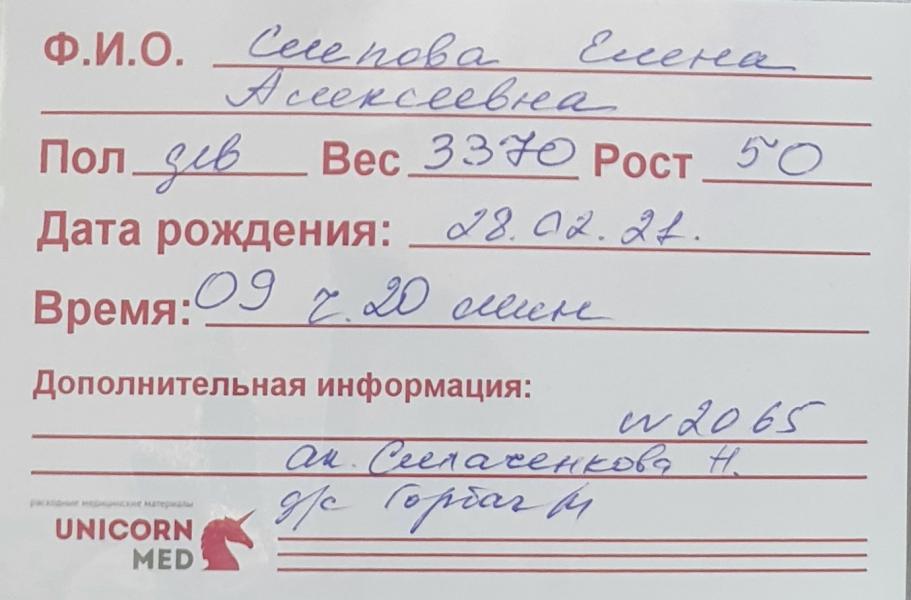 Ф.И.О. Слепова Елена
Алексеевна
Пол дев Вес 3370 Рост 50
Дата рождения: 28.02.21.
Время: 09 ч. 20 мин
Дополнительная информация:
N 2065
ак. Силаченкова Н.
д/с Горбач М
расходные медицинские материалы
UNICORN
MED